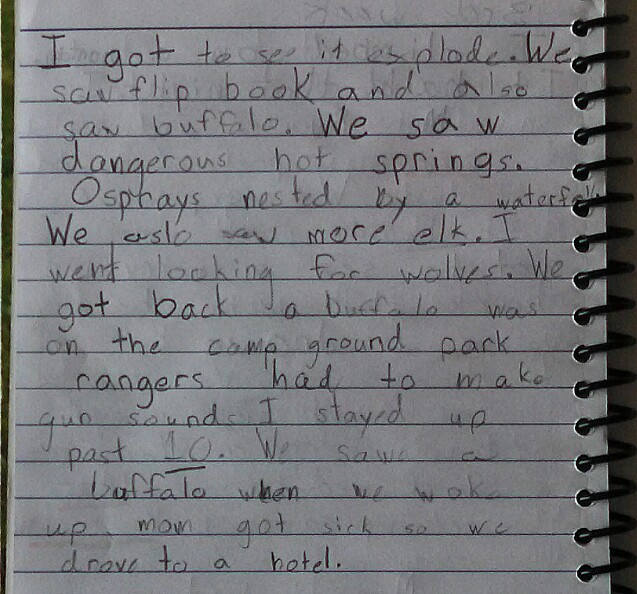 I got to see it explode. We
saw flip book and also
saw buffalo. We saw
dangerous hot springs.
Osphays nested by a waterfall
We aslo saw more elk. I
went looking for wolves. We
got back a buffalo was
on the camp ground park
rangers had to make
gun sounds I stayed up
past 10. We saw a
buffalo when we woke
up mom got sick so we
drove to a hotel.